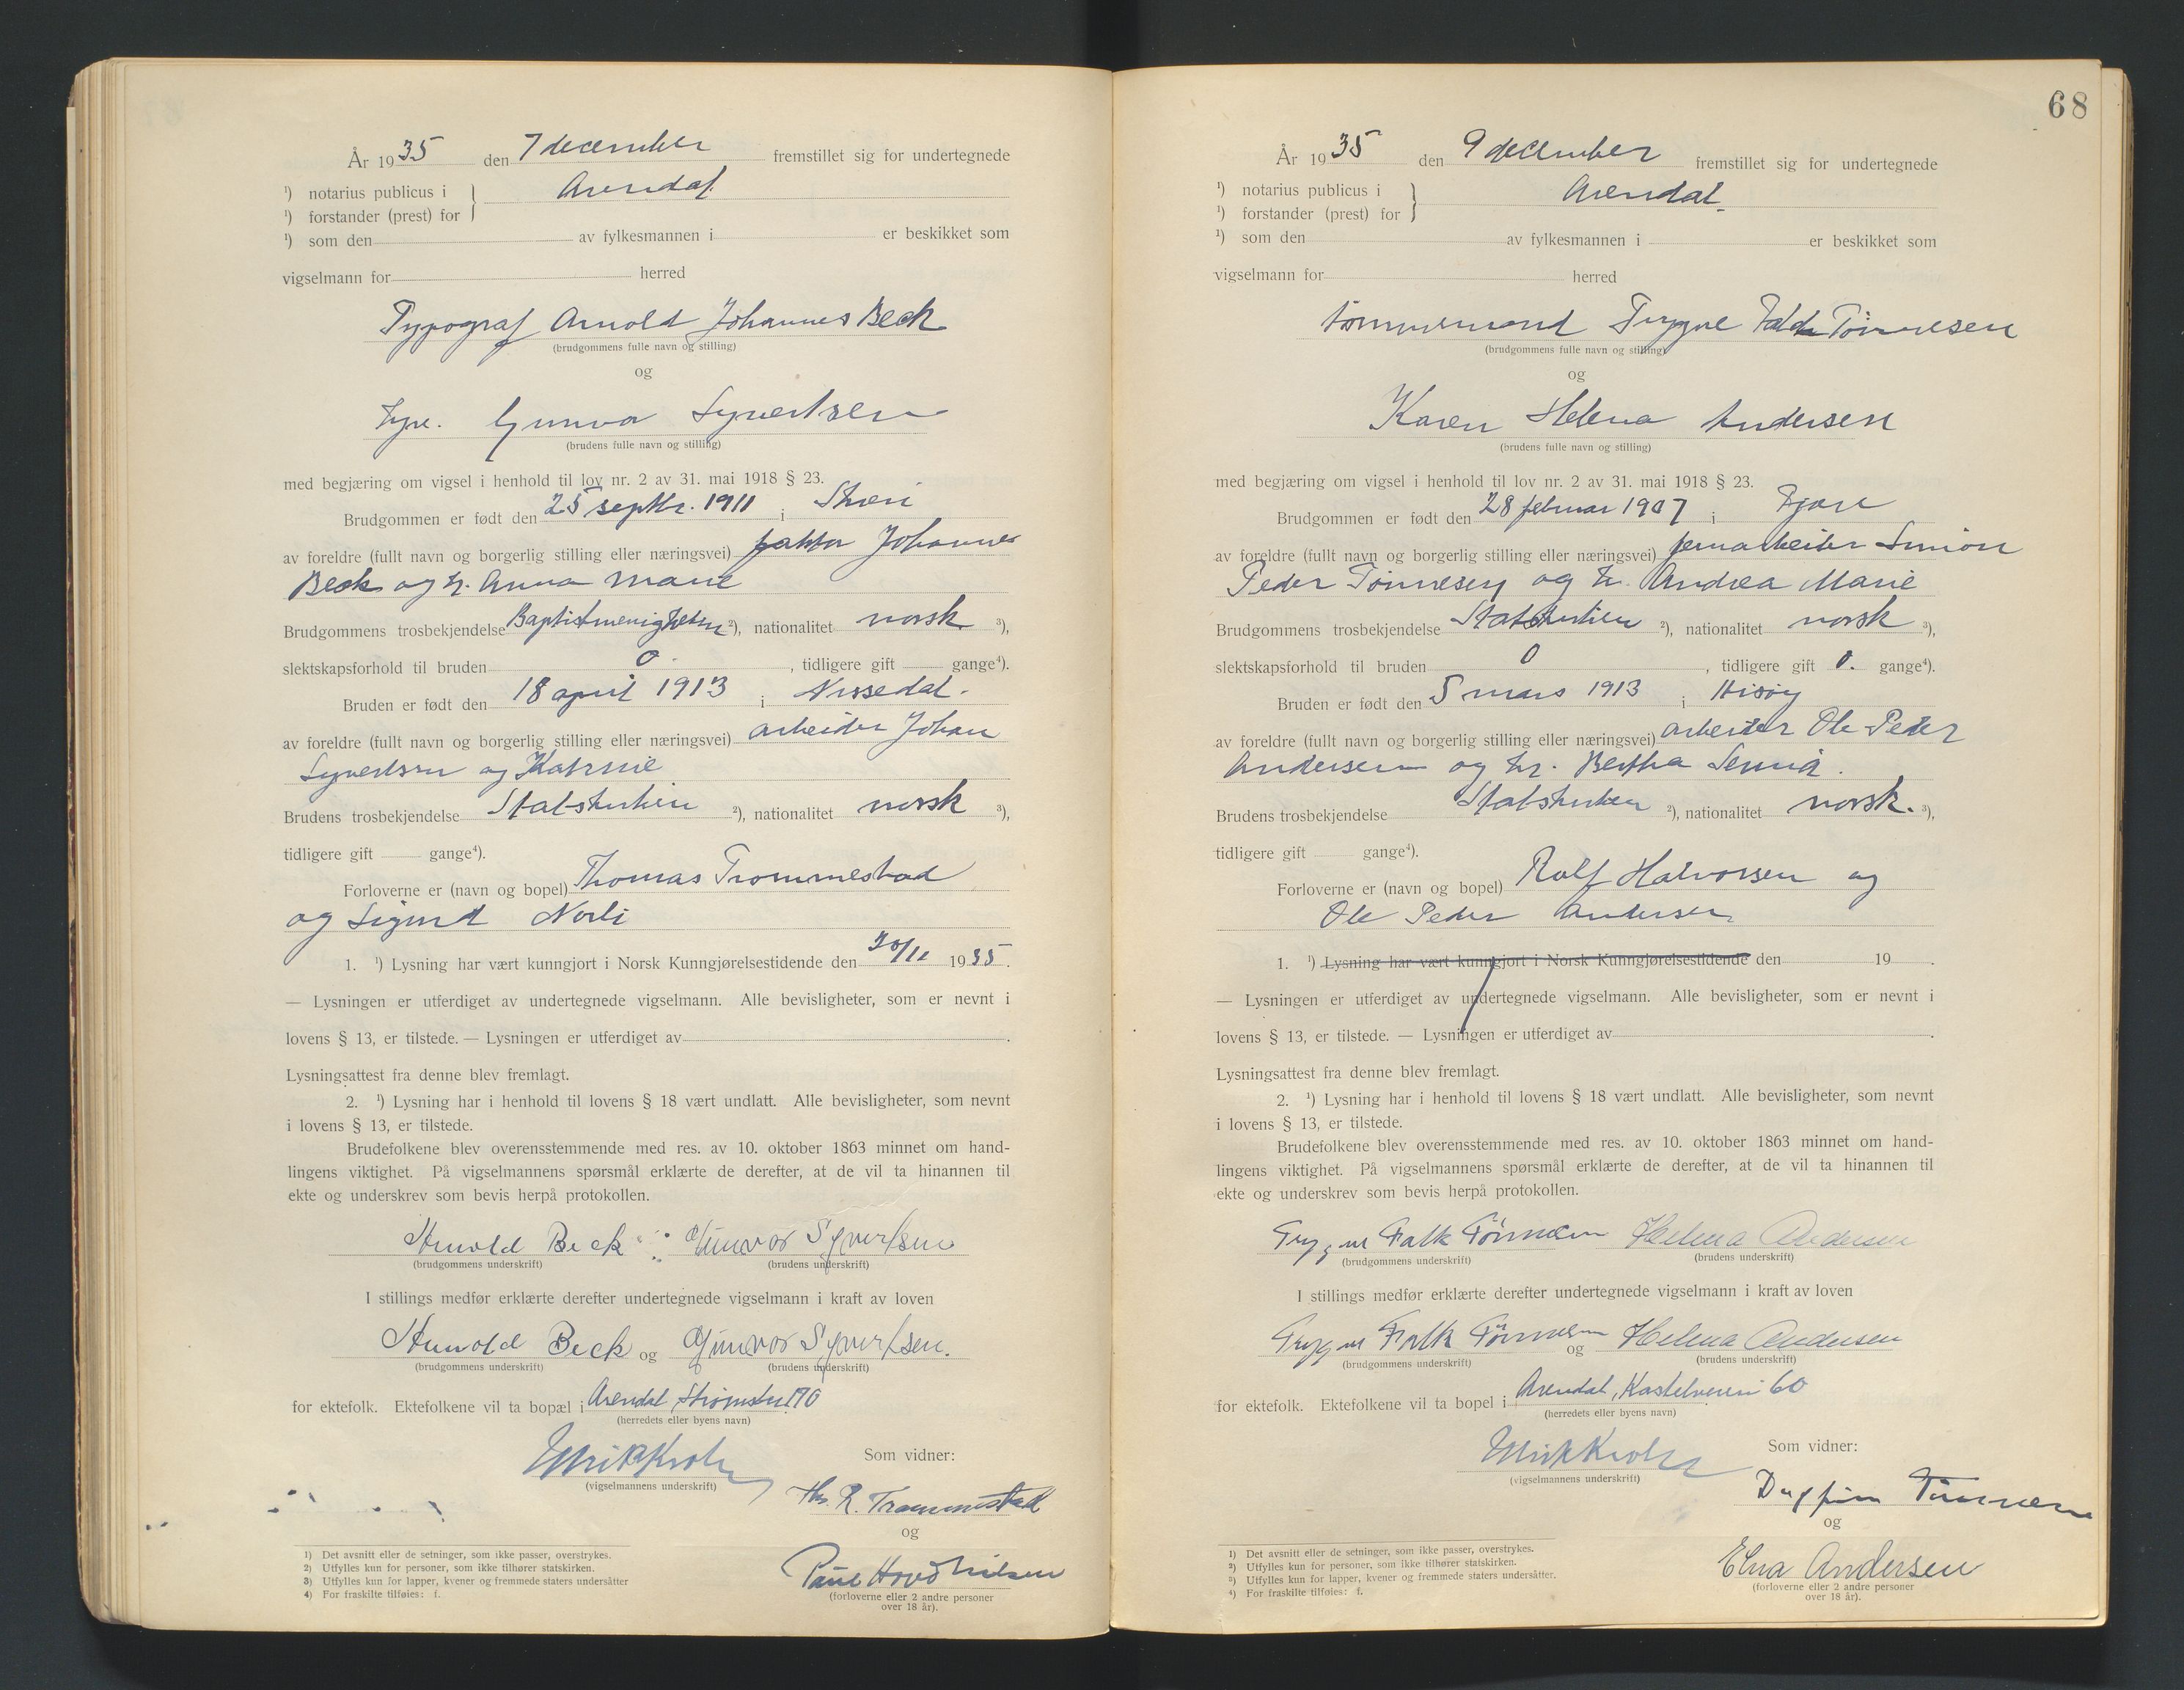 År 1935 den 7 december fremstillet sig for undertegnede
¹) notarius publicus i
¹) forstander (prest) for } Arendal.
¹) som den av fylkesmannen i er beskikket som
vigselmann for herred
Typograf Arnold Johannes Beck
(brudgommens fulle navn og stilling)
og
Gunvor Syvertsen
(brudens fulle navn og stilling)
med begjæring om vigsel i henhold til lov nr. 2 av 31. mai 1918 § 23.
Brudgommen er født den 25 septbr. 1911 i
av foreldre (fullt navn og borgerlig stilling eller næringsvei) faktor Johannes
Beck og h. Anna Marie
Brudgommens trosbekjendelse Baptistmenigheten ²), nationalitet norsk ³),
slektskapsforhold til bruden 0. , tidligere gift gange⁴).
Bruden er født den 18 april 1913 i Nissedal.
av foreldre (fullt navn og borgerlig stilling eller næringsvei) arbeider Johan
Syvertsen og Katrine
Brudens trosbekjendelse Statskirken ²), nationalitet norsk ³),
tidligere gift gange⁴).
Forloverne er (navn og bopel) Thomas Trommestad
og Sigurd Norli
1. ¹) Lysning har vært kunngjort i Norsk Kunngjørelsestidende den 20/11 1935.
— Lysningen er utferdiget av undertegnede vigselmann. Alle bevisligheter, som er nevnt i
lovens § 13, er tilstede. — Lysningen er utferdiget av .
Lysningsattest fra denne blev fremlagt.
2. ¹) Lysning har i henhold til lovens § 18 vært undlatt. Alle bevisligheter, som nevnt
i lovens § 13, er tilstede.
Brudefolkene blev overensstemmende med res. av 10. oktober 1863 minnet om hand-
lingens viktighet. På vigselmannens spørsmål erklærte de derefter, at de vil ta hinannen til
ekte og underskrev som bevis herpå protokollen.
Arnold Beck Gunvor Syvertsen
(brudgommens underskrift) (brudens underskrift)
I stillings medfør erklærte derefter undertegnede vigselmann i kraft av loven
Arnold Beck og Gunvor Syvertsen.
(brudgommens underskrift) (brudens underskrift)
for ektefolk. Ektefolkene vil ta bopæl i Arendal,
(herredets eller byens navn)
Ulrik Krohn
(vigselmannens underskrift)
Som vidner:
Th. R. Trommestad
og
Paul Hovd Nilsen
(forloverne eller 2 andre personer
over 18 år).
1) Det avsnitt eller de setninger, som ikke passer, overstrykes.
2) Utfylles kun for personer, som ikke tilhører statskirken.
3) Utfylles kun for lapper, kvener og fremmede staters undersåtter
4) For fraskilte tilføies: f.
68
År 1935 den 9 december fremstillet sig for undertegnede
¹) notarius publicus i
¹) forstander (prest) for } Arendal.
¹) som den av fylkesmannen i er beskikket som
vigselmann for herred
tømmermand Trygve Falk Tønnesen
(brudgommens fulle navn og stilling)
og
Karen Helena Andersen
(brudens fulle navn og stilling)
med begjæring om vigsel i henhold til lov nr. 2 av 31. mai 1918 § 23.
Brudgommen er født den 28 februar 1907 i
av foreldre (fullt navn og borgerlig stilling eller næringsvei) jernarbeider Simon
Peder Tønnesen og h. Andrea Marie
Brudgommens trosbekjendelse Statskirken ²), nationalitet norsk ³),
slektskapsforhold til bruden 0 , tidligere gift 0. gange⁴).
Bruden er født den 5 mars 1913 i Hisøy
av foreldre (fullt navn og borgerlig stilling eller næringsvei) arbeider Ole Peder
Andersen og h. Bertha Senia.
Brudens trosbekjendelse Statskirken ²), nationalitet norsk. ³),
tidligere gift gange⁴).
Forloverne er (navn og bopel) Rolf Halvorsen og
Ole Peder Andersen
1. ¹) Lysning har vært kunngjort i Norsk Kunngjørelsestidende den 19 .
— Lysningen er utferdiget av undertegnede vigselmann. Alle bevisligheter, som er nevnt i
lovens § 13, er tilstede. — Lysningen er utferdiget av .
Lysningsattest fra denne blev fremlagt.
2. ¹) Lysning har i henhold til lovens § 18 vært undlatt. Alle bevisligheter, som nevnt
i lovens § 13, er tilstede.
Brudefolkene blev overensstemmende med res. av 10. oktober 1863 minnet om hand-
lingens viktighet. På vigselmannens spørsmål erklærte de derefter, at de vil ta hinannen til
ekte og underskrev som bevis herpå protokollen.
Trygve Falk Tønnesen Helena Andersen
(brudgommens underskrift) (brudens underskrift)
I stillings medfør erklærte derefter undertegnede vigselmann i kraft av loven
Trygve Falk Tønnesen og Helena Andersen
(brudgommens underskrift) (brudens underskrift)
for ektefolk. Ektefolkene vil ta bopel i Arendal, Kastelveien 60
(herredets eller byens navn)
Ulrik Krohn
(vigselmannens underskrift)
Som vidner:
Dagfinn Tønnesen
og
Elna Andersen
(forloverne eller 2 andre personer
over 18 år).
1) Det avsnitt eller de setninger, som ikke passer, overstrykes.
2) Utfylles kun for personer, som ikke tilhører statskirken.
3) Utfylles kun for lapper, kvener og fremmede staters undersåtter.
4) For fraskilte tilføies: f.